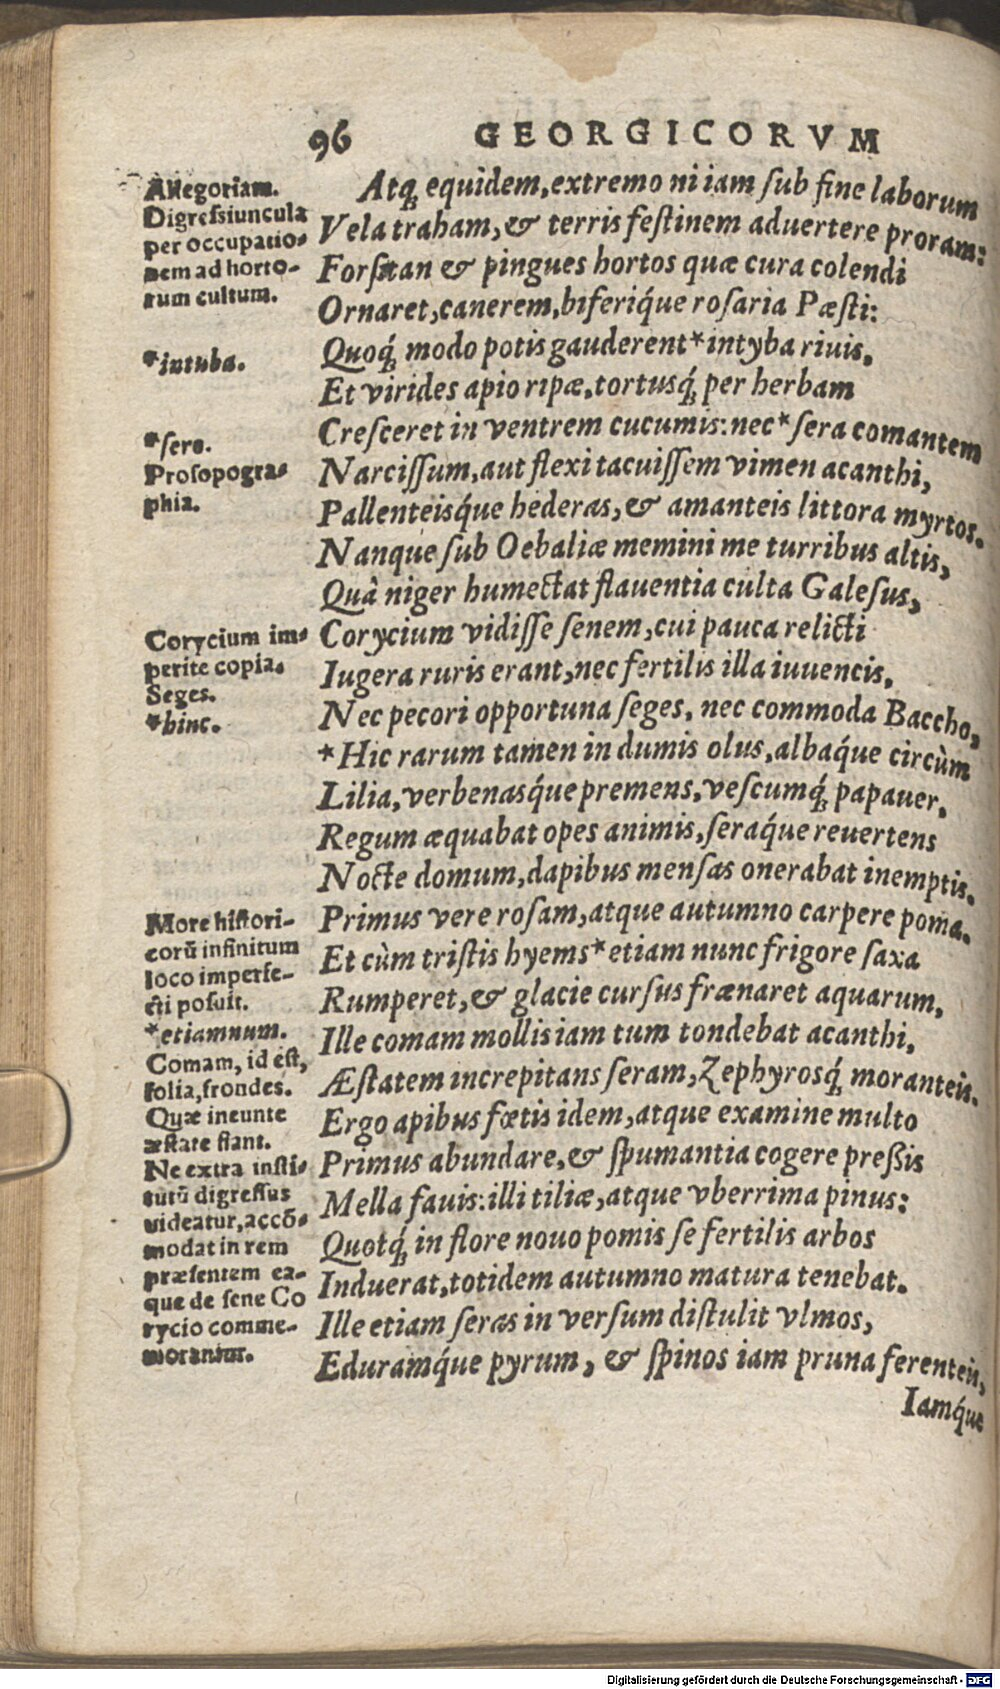 96 GEORGICORVM
Allegoriam.
Digressiuncula
per occupatio-
nem ad horto-
rum cultum.
*intuba.
*sero.
Prosopogra-
phia.
Corycium im-
perite copia.
Seges.
*hinc.
More histori-
corū infinitum
loco imperfe-
cti posuit.
*etiamnum.
Comam, id est,
folia, frondes.
Quæ ineunte
æstate fiant.
Ne extra insti-
tutū digressus
videatur, accō-
modat in rem
præsentem ea-
que de sene Co
rycio comme-
morantur.
Atq; equidem, extremo ni iam sub fine laborum
Vela traham, & terris festinem aduertere proram:
Forsitan & pingues hortos quæ cura colendi
Ornaret, canerem, biferiq́ue rosaria Pæsti:
Quoq́; modo potis gauderent *intyba riuis,
Et virides apio ripæ, tortusq́; per herbam
Cresceret in ventrem cucumis: nec *sera comantem
Narcissum, aut flexi tacuissem vimen acanthi,
Pallenteisq́ue hederas, & amanteis littora myrtos.
Nanque sub Oebaliæ memini me turribus altis,
Quà niger humectat flauentia culta Galesus,
Corycium vidisse senem, cui pauca relicti
Iugera ruris erant, nec fertilis illa iuuencis,
Nec pecori opportuna seges, nec commoda Baccho,
*Hic rarum tamen in dumis olus, albaq́ue circùm
Lilia, verbenasq́ue premens, vescumq́; papauer,
Regum æquabat opes animis, seraq́ue reuertens
Nocte domum, dapibus mensas onerabat inemptis.
Primus vere rosam, atque autumno carpere poma.
Et cùm tristis hyems *etiam nunc frigore saxa
Rumperet, & glacie cursus frænaret aquarum,
Ille comam mollis iam tum tondebat acanthi,
Æstatem increpitans seram, Zephyrosq́; moranteis.
Ergo apibus fœtis idem, atque examine multo
Primus abundare, & spumantia cogere preßis
Mella fauis: illi tiliæ, atque vberrima pinus:
Quotq́; in flore nouo pomis se fertilis arbos
Induerat, totidem autumno matura tenebat.
Ille etiam seras in versum distulit vlmos,
Eduramq́ue pyrum, & spinos iam pruna ferenteis,
Iamq́ue
Digitalisierung gefördert durch die Deutsche Forschungsgemeinschaft - DFG